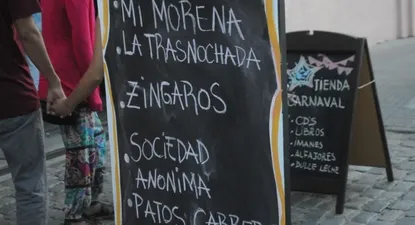 • MI MORENA
• LA TRASNOCHADA
• ZINGAROS
• SOCIEDAD
ANONIMA
• PATOS CABRE
TIENDA
CARNAVAL
• CD'S
• LIBROS
• IMANES
• ALFAJORES
• DULCE LECHE